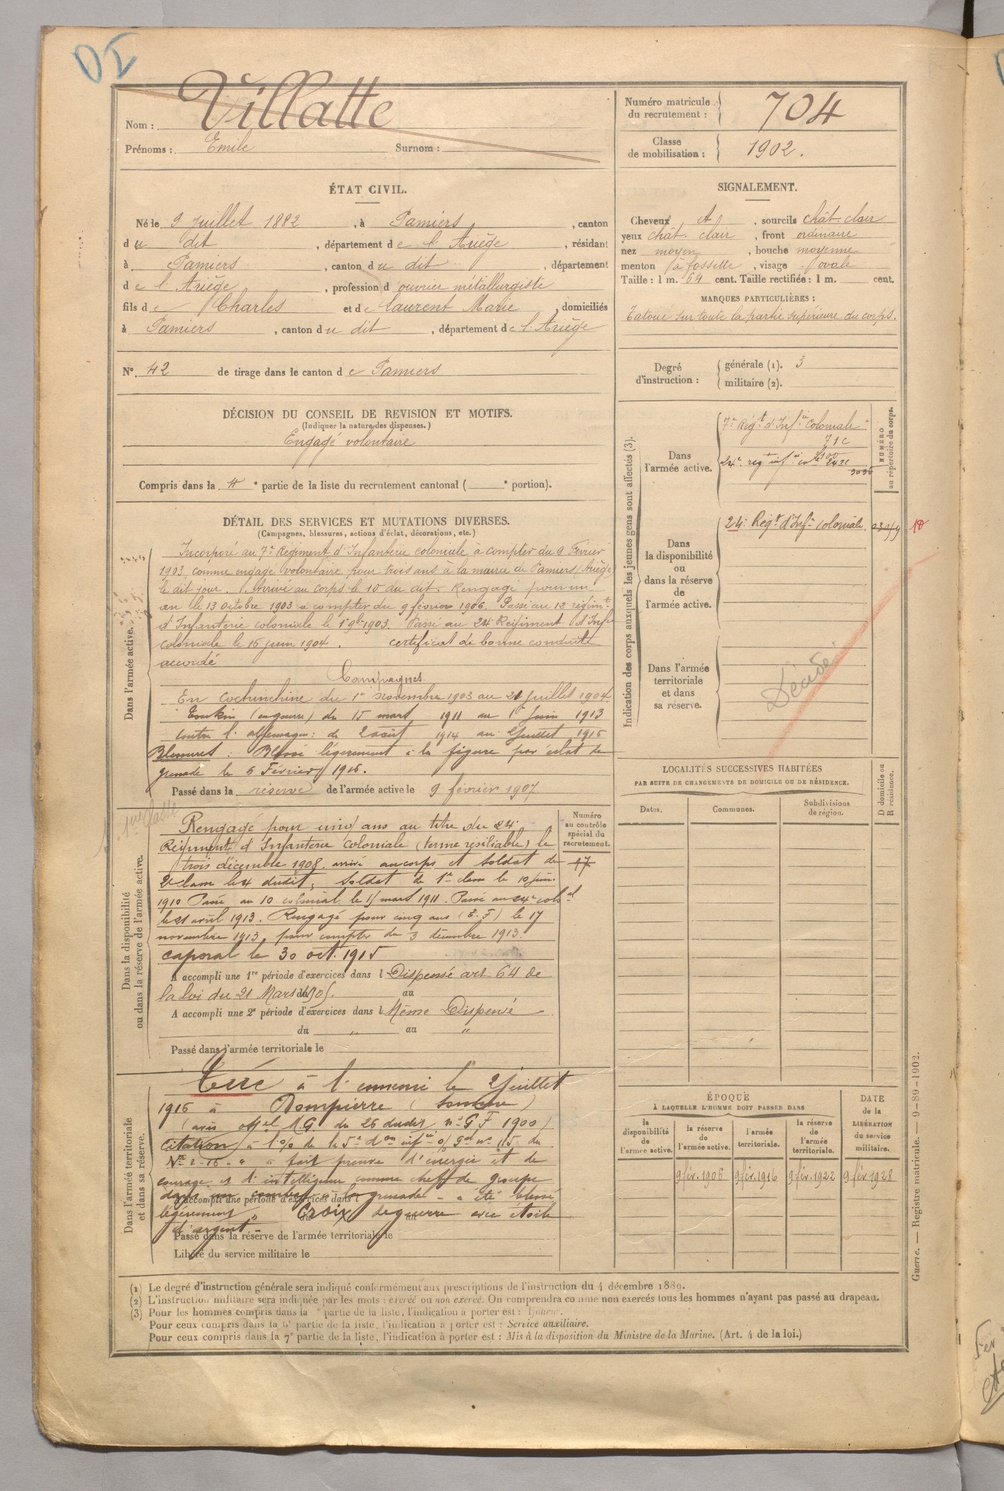 Villatte
Nom :
Prénoms : Emile Surnom :
Numéro matricule du recrutement : 704
Classe de mobilisation : 1902.
ÉTAT CIVIL.
Né le 9 Juillet 1882, à Pamiers, canton
du dit, département de l'Ariège, résidant
à Pamiers, canton du dit, département
de l'Ariège, profession d'ouvrier métallurgiste
fils de Charles et de Laurent Marie domiciliés
à Pamiers, canton du dit, département de l'Ariège
N° 42 de tirage dans le canton de Pamiers
DÉCISION DU CONSEIL DE REVISION ET MOTIFS.
(Indiquer la nature des dispenses.)
Engagé volontaire
Compris dans la 4e partie de la liste du recrutement cantonal ( e portion).
SIGNALEMENT.
Cheveux, sourcils chât clair
yeux chât clair, front ordinaire
nez moyen, bouche moyenne
menton à fossette, visage ovale
Taille : 1 m. 64 cent. Taille rectifiée : 1 m. cent.
MARQUES PARTICULIÈRES :
Tatoué sur toute la partie supérieure du corps.
Degré d'instruction : générale (1). 3
militaire (2).
DÉTAIL DES SERVICES ET MUTATIONS DIVERSES.
(Campagnes, blessures, actions d'éclat, décorations, etc.)
Dans l'armée active.
Incorporé au 7e Régiment d'Infanterie coloniale à compter du 9 Février
1903 comme engagé volontaire pour trois ans à la mairie de Pamiers, Ariège
le dit jour. Arrivé au corps le 10 du dit. Rengagé pour un
an le 13 octobre 1903 à compter du 9 février 1906. Passé au régimt
d'Infanterie coloniale le 1903. Passé au 24e Régiment d'Infie
coloniale le 16 juin 1904. certificat de bonne conduite
accordé
Campagnes
En Cochinchine du 1er novembre 1903 au 21 juillet 1904
Tonkin (en guerre) du 15 mars 1911 au 1er juin 1913
contre l'allemagne : du 2 août 1914 au 2 juillet 1916
Blessures : Blessé légèrement à la figure par éclat de
grenade le 5 Février 1916.
Passé dans la réserve de l'armée active le 9 février 1907
Dans la disponibilité ou dans la réserve de l'armée active.
Rengagé pour cinq ans au titre du 24e
Régiment d'Infanterie Coloniale (terme résiliable) le
trois décembre 1908. arrivé au corps et soldat de
2e classe le 4 dudit, soldat de 1re classe le 10 juin
1910 Passé au 10 colonial le 1er mars 1911. Passé au 24e colial
le 21 avril 1913. Rengagé pour cinq ans le 17
novembre 1913, pour compter du 3 décembre 1913.
caporal le 30 oct. 1915
A accompli une 1re période d'exercices dans l Dispensé art 64 de
la loi du 21 Mars 1905. au
A accompli une 2e période d'exercices dans l Même Dispensé
du " au "
Passé dans l'armée territoriale le
Numéro au contrôle spécial du recrutement.
17
Dans l'armée territoriale et dans sa réserve.
Tué à l'ennemi le 2 juillet
1916 à Dompierre (Somme)
(avis Mel MG du 26 dudit, n° GF 1900)
citation à l'o/o de la 5e don infie
a fait preuve d'énergie et de
courage et d'intelligence comme chef de groupe
dans un combat à la grenade - a été blessé
légèrement" Croix de guerre avec étoile
d'argent -
A accompli une période d'exercices dans l
Passé dans la réserve de l'armée territoriale le
Libéré du service militaire le
Indication des corps auxquels les jeunes gens sont affectés (3).
NUMÉRO au répertoire du corps.
Dans l'armée active.
7e Régt d'Infie Coloniale
24e regt infie cole
Dans la disponibilité ou dans la réserve de l'armée active.
24e Régt d'Infie coloniale
Dans l'armée territoriale et dans sa réserve.
Décédé
LOCALITÉS SUCCESSIVES HABITÉES
PAR SUITE DE CHANGEMENTS DE DOMICILE OU DE RÉSIDENCE.
Dates. Communes. Subdivisions de région.
D domicile ou R résidence.
ÉPOQUE
À LAQUELLE L'HOMME DOIT PASSER DANS
la disponibilité de l'armée active.
la réserve de l'armée active.
l'armée territoriale.
la réserve de l'armée territoriale.
DATE de la LIBÉRATION du service militaire.
9 fév. 1906 9 fév. 1916 9 fév. 1922 9 fév 1928
(1) Le degré d'instruction générale sera indiqué conformément aux prescriptions de l'instruction du 4 décembre 1889.
(2) L'instruction militaire sera indiquée par les mots : exercé ou non exercé. On comprendra comme non exercés tous les hommes n'ayant pas passé au drapeau.
(3) Pour les hommes compris dans la e partie de la liste, l'indication à porter est : Ajourné.
Pour ceux compris dans la 5e partie de la liste, l'indication à porter est : Service auxiliaire.
Pour ceux compris dans la 7e partie de la liste, l'indication à porter est : Mis à la disposition du Ministre de la Marine. (Art. 4 de la loi.)
Guerre. — Registre matricule. — 9-89-1902.